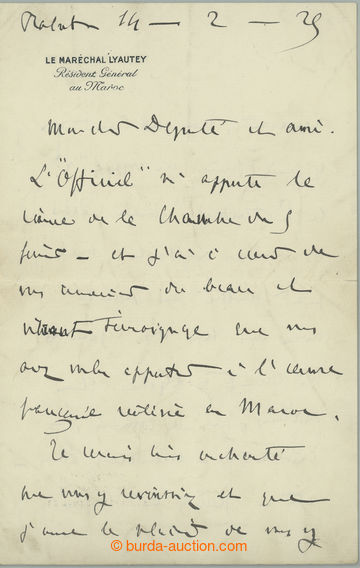 Rabat 14 - 2 - 25
LE MARÉCHAL LYAUTEY
Résident Général
au Maroc
Mon cher Député et ami.
L'"Officiel" m'apporte la
séance de la Chambre du 5
février - et j'ai à cœur de
vous remercier du beau et
vibrant témoignage que vous
avez voulu apporter à l'œuvre
française réalisée en Maroc.
Je serais très enchanté
que vous y reveniez et que
j'aie le plaisir de vous y
© burda-auction.com